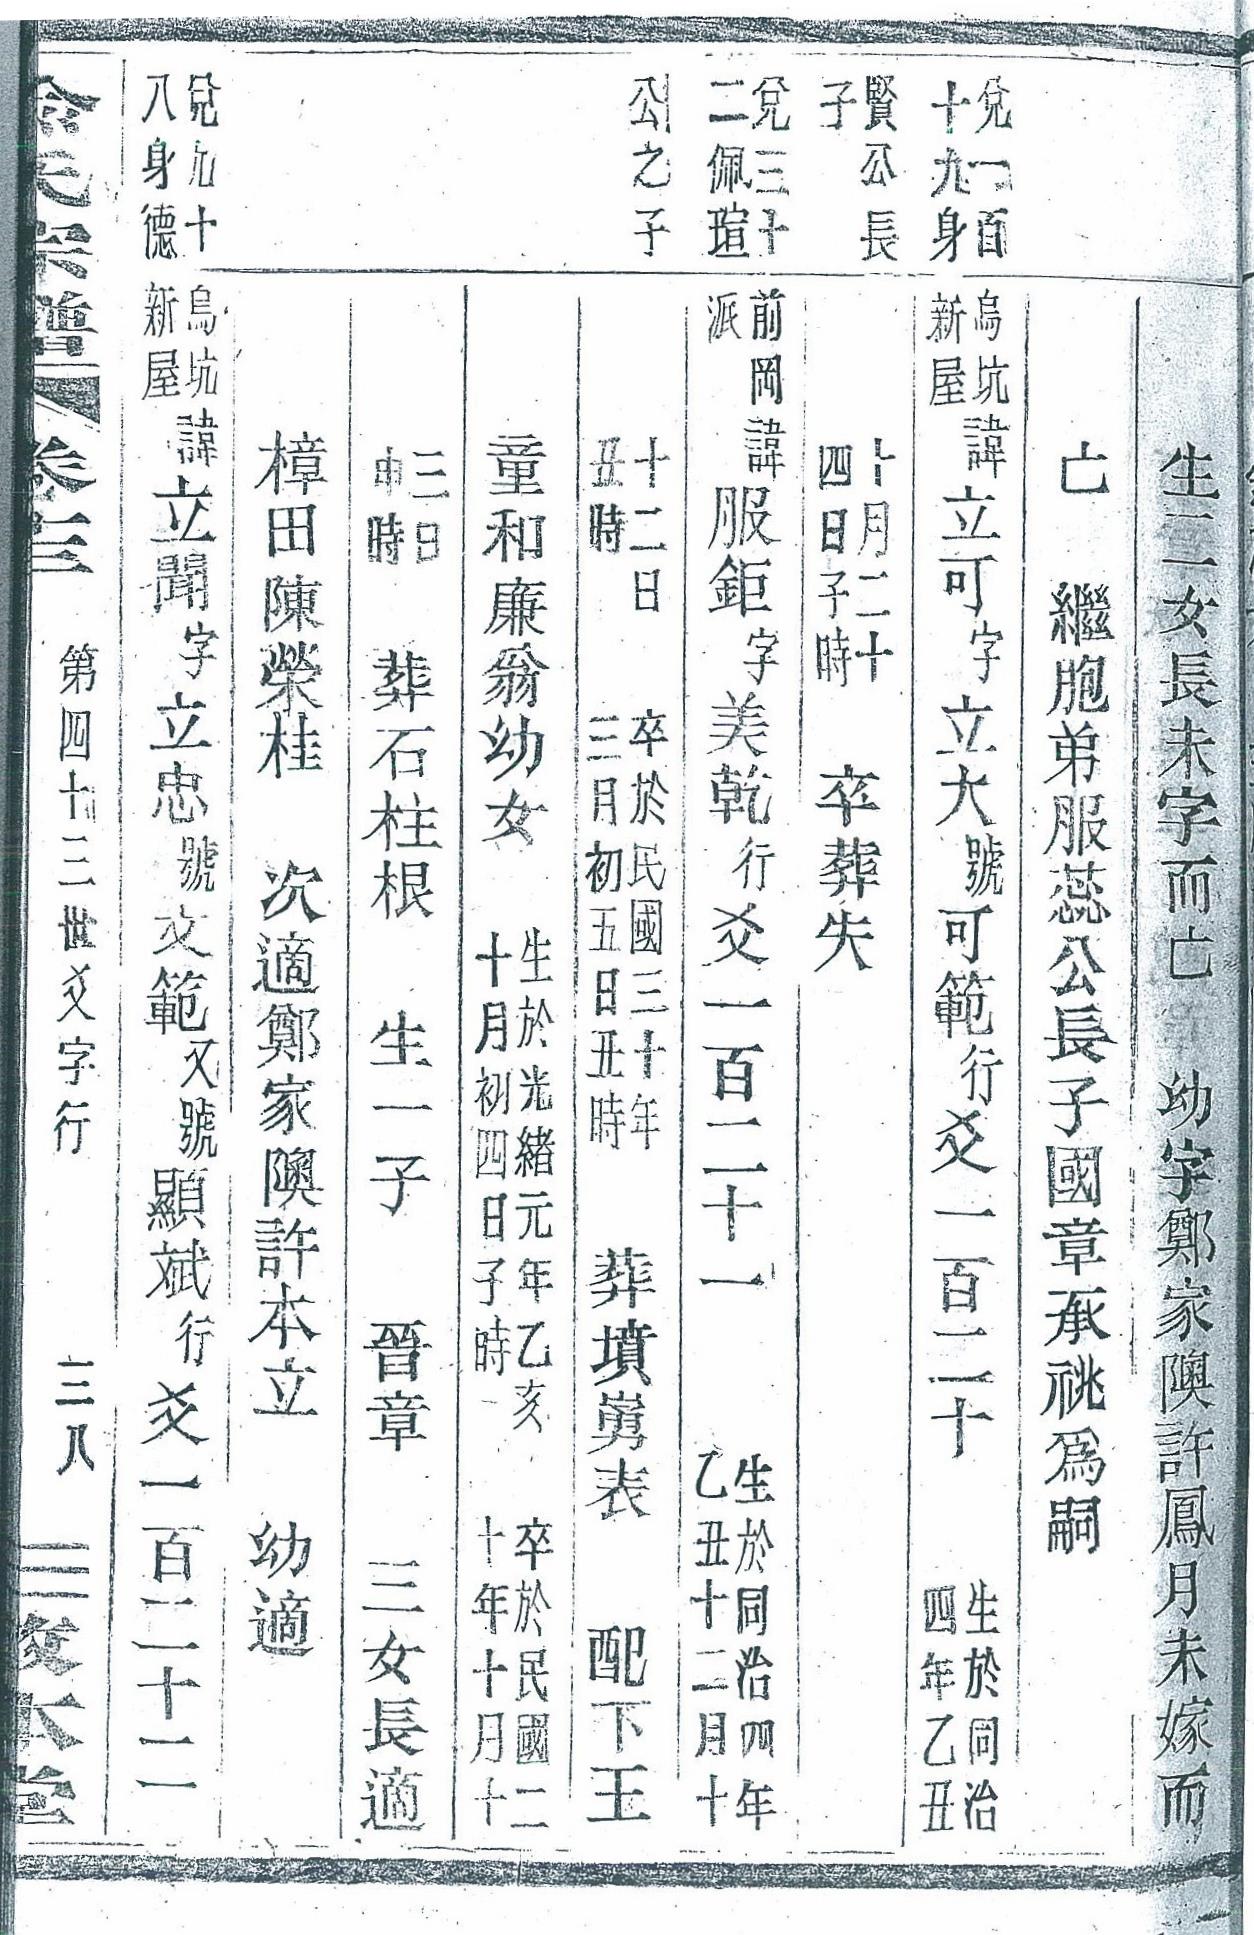 生二女長未字而亡 幼字鄭家隩許鳳月未嫁而
亡 繼胞弟服蕊公長子國章承祧爲嗣
兌一百
十九身
烏坑
新屋
諱立可字立大號可範行爻一百二十
生於同治
四年乙丑
賢公長
子
十月二十
四日子時
卒葬失
兌三十
二佩瑄
前岡
派
諱服鉅字美乾行爻一百二十一
生於同治四年
乙丑十二月十
公之子
十二日
丑時
卒於民國三十年
三月初五日丑時
葬墳嶲表 配下王
童和廉翁幼女
生於光緒元年乙亥
十月初四日子時
卒於民國二
十年十月十
三日
申時
葬石柱根 生一子 晉章 三女長適
樟田陳榮桂 次適鄭家隩許本立 幼適
兌九十
八身德
烏坑
新屋
諱立聞字立忠號文範又號顯斌行爻一百二十二
氏宗譜 卷三 第四十三世爻字行 三八 敘本堂